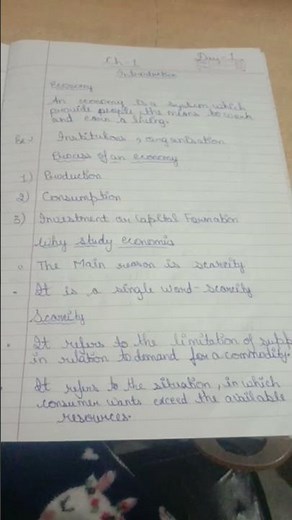 Ch-1
Day-1
Introduction
Economy
An economy is a system which
provide people the means to work
and earn a living.
Ex:- Institutions, organisation
Process of an economy
1) Production
2) Consumption
3) Investment or Capital Formation
Why study economics
The Main reason is scarcity
It is a single word- scarcity
Scarcity
It refers to the limitation of supp
in relation to demand for a commodity.
It refers to the situation, in which
consumer wants exceed the available
resources.